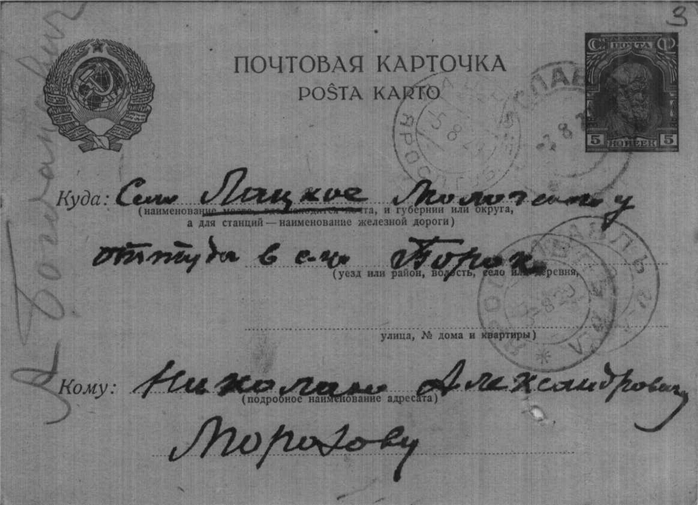 3
ПОЧТОВАЯ КАРТОЧКА
POŜTA KARTO
ПОЧТА
5 КОПЕЕК 5
Куда: Село Лацкое Мологскому
(наименование места, где находится почта, и губернии или округа,
а для станций—наименование железной дороги)
оттуда в с-цо Борок
(уезд или район, волость, село или деревня,
улица, № дома и квартиры)
Кому: Николаю Александровичу
(подробное наименование адресата)
Морозову
ЯРОСЛАВЛЬ